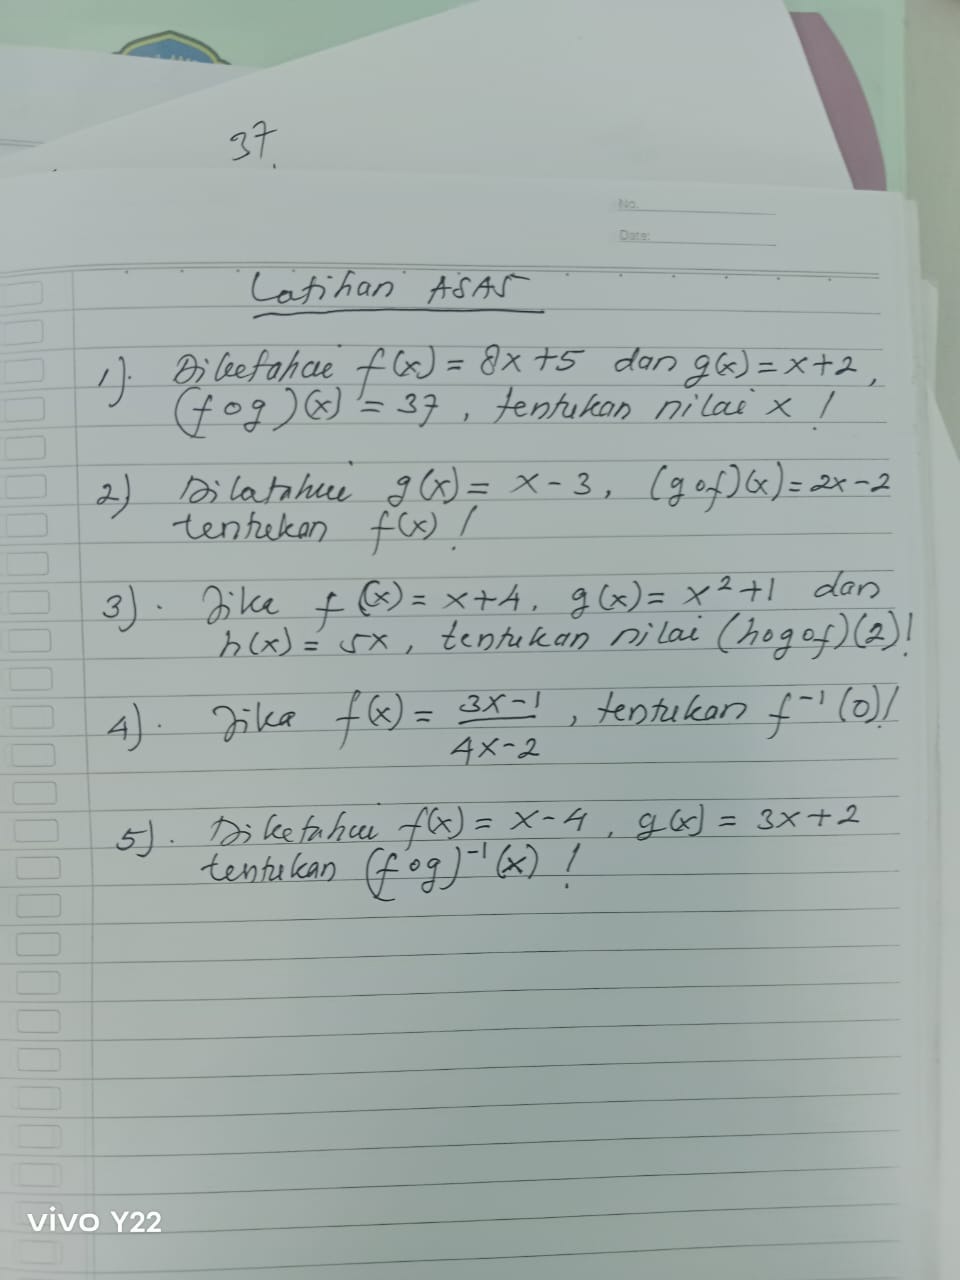 37.
No.
Date:
Latihan ASAS
1). Diketahui f(x) = 8x+5 dan g(x) = x+2,
(fog)(x) = 37, tentukan nilai x !
2) Diketahui g(x) = x-3, (gof)(x) = 2x-2
tentukan f(x) !
3). Jika f(x) = x+4, g(x) = x²+1 dan
h(x) = 5x, tentukan nilai (hogof)(2)!
4). Jika f(x) = 3x-1 / 4x-2, tentukan f⁻¹(0)!
5). Diketahui f(x) = x-4, g(x) = 3x+2
tentukan (fog)⁻¹(x) !
vivo Y22